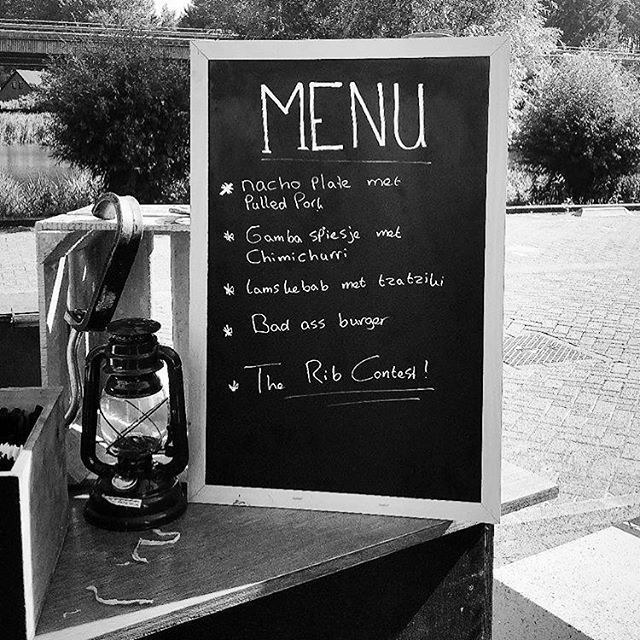 MENU
* nacho plate met
Pulled Pork
* Gamba spiesje met
Chimichurri
* lamskebab met tzatziki
* Bad ass burger
* The Rib Contest!